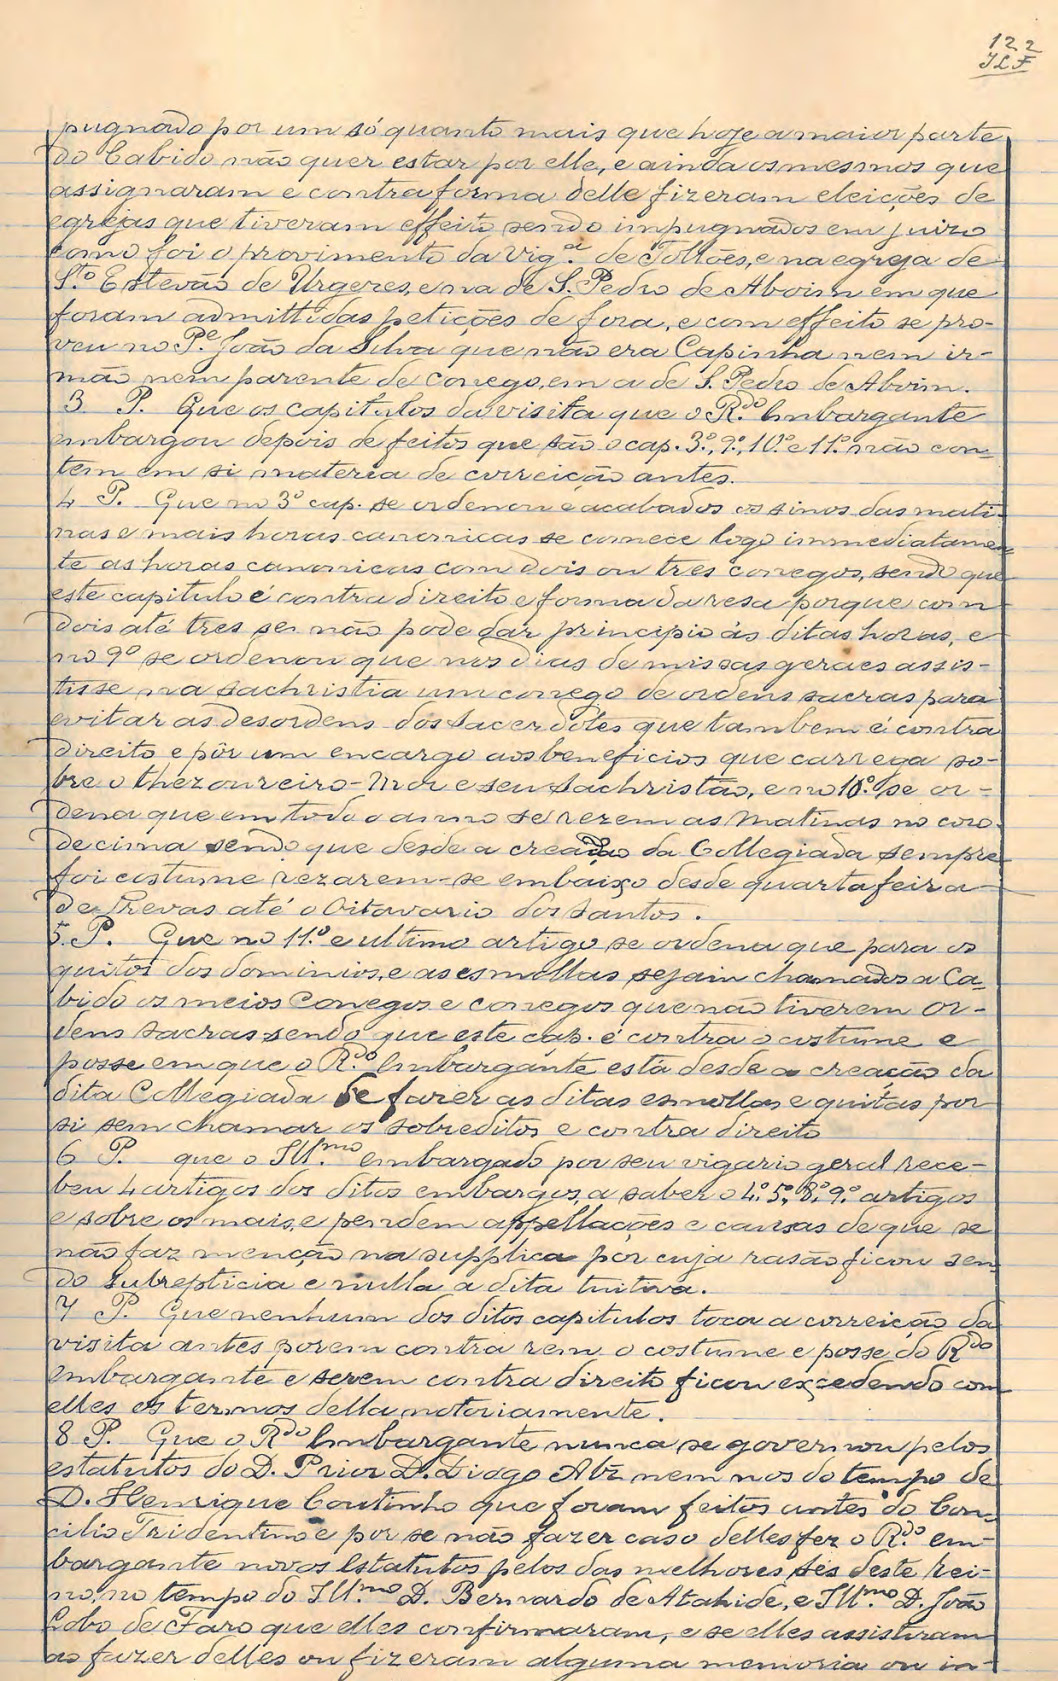 122
JLF
pugnado por um só quanto mais que hoje a maior parte
do Cabido não quer estar por elle, e ainda os mesmos que
assignaram e contra forma delle fizeram eleições de
egrejas que tiveram effeito sendo impugnados em juizo
como foi o provimento da Vig.ª de Tollões, e na egreja de
S.to Estevão de Urgeres, e na de S. Pedro de Aboim em que
foram admittidas petições de fora, e com effeito se pro-
veu no P.e João da Silva que não era Capinha nem ir-
mão nem parente de conego, em a de S. Pedro de Aboim.
3 P. Que os capitulos da visita que o R.do Embargante
embargou depois de feitos que são o cap. 3.º, 9.º, 10.º e 11.º não con-
tem em si materia de correição antes.
4 P. Que no 3º cap. se ordenou e acabados os sinos das mati-
nas e mais horas canonicas se comece logo immediatamen-
te as horas canonicas com dois ou tres conegos, sendo que
este capitulo é contra direito e forma da resa porque com
dois até tres se não pode dar principio ás ditas horas, e
no 9º se ordenou que nos dias de missas geraes assis-
tisse na sachristia um conego de ordens sacras para
evitar as desordens dos sacerdotes que tambem é contra
direito e pôr um encargo aos beneficios que carrega so-
bre o thezoureiro-Mor e seu sachristão, e no 10.º se or-
dena que em todo o anno se rezem as matinas no coro
de cima sendo que desde a creação da Collegiada sempre
foi costume rezarem-se embaixo desde quarta feira
de Trevas até o Oitavario dos Santos.
5. P. Que no 11.º e ultimo artigo se ordena que para os
quitos dos dominios, e as esmollas sejam chamados a Ca-
bido os meios Conegos e conegos que não tiverem Or-
dens sacras sendo que este cap. é contra o costume e
posse em que o R.do Embargante está desde a creação da
dita Collegiada de fazer as ditas esmollas e quitas por
si sem chamar os sobreditos e contra direito
6 P. que o Ill.mo embargado por seu vigario geral rece-
beu 4 artigos dos ditos embargos, a saber o 4.º 5.º 8.º 9.º artigos
e sobre os mais, e pendem appellações e causas de que se
não faz menção na supplica por cuja rasão ficou sen-
do subrepticia e nulla a dita tuitiva.
7 P. Que nenhum dos ditos capitulos toca a correição da
visita antes porem contra rem o costume e posse do R.do
embargante e serem contra direito ficou excedendo com
elles os termos della notoriamente.
8 P. Que o R.do Embargante nunca se governou pelos
estatutos do D. Prior D. Diogo Alz nem nos do tempo de
D. Henrique Coutinho que foram feitos antes do Con-
cilio Tridentino e por se não fazer caso delles fez o R.do em-
bargante novos Estatutos pelos das melhores sés deste Rei-
no, no tempo do Ill.mo D. Bernardo de Atahide, e Ill.mo D. João
Lobo de Faro que elles confirmaram, e se elles assistiram
ao fazer delles ou fizeram alguma memoria ou in-